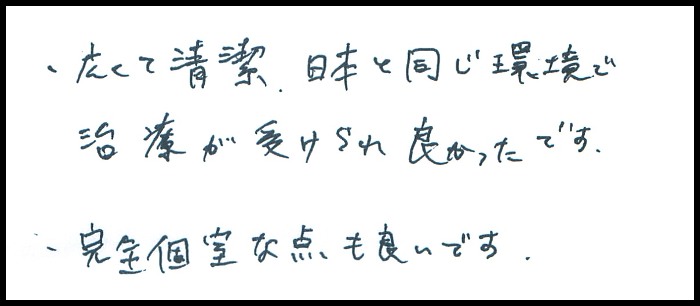 ・広くて清潔、日本と同じ環境で
治療が受けられ良かったです。
・完全個室な点も良いです。